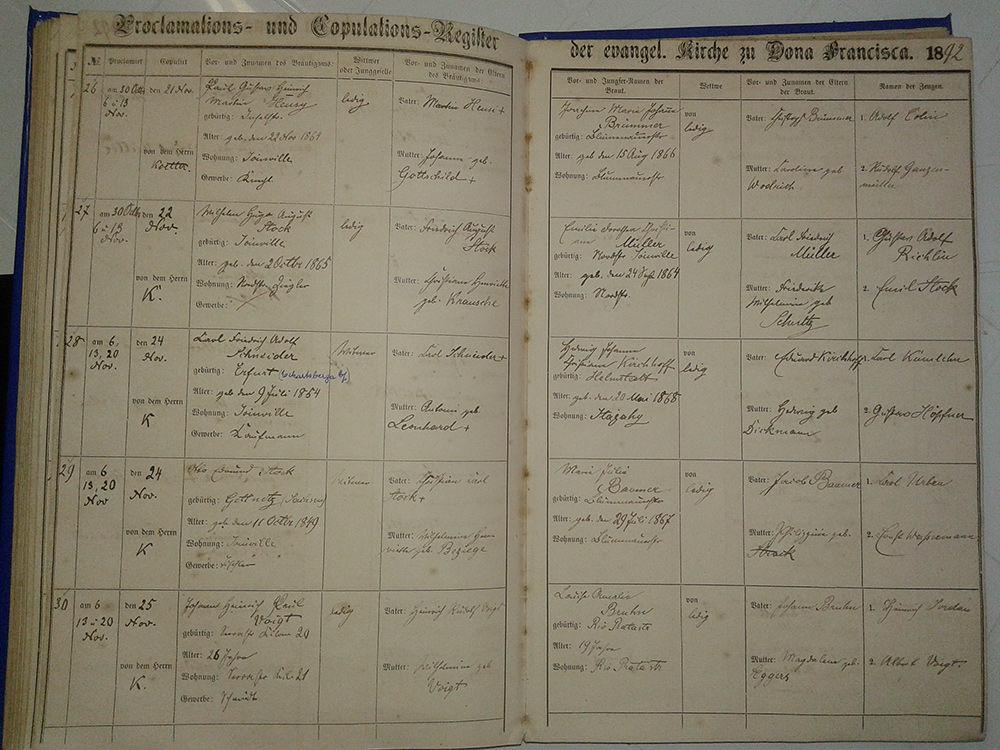 Proclamations- und Copulations-Register
der evangel. Kirche zu Dona Francisca. 1892
№ Proclamirt Copulirt Vor- und Zunamen des Bräutigams: Wittwer oder Junggeselle Vor- und Zunamen der Eltern des Bräutigams:
Vor- und Jungfer-Namen der Braut. Wittwe Vor- und Zunamen der Eltern der Braut. Namen der Zeugen.
26 am 30 Octb 6 u 13 Nov. den 21 Nov.
von dem Herrn
Paul Gustav Heinrich
Martin Hensy
gebürtig:
Alter: geb. den 22 Nov 1869
Wohnung: Joinville
Gewerbe:
ledig
Vater: Martin
Mutter: Johanne geb.
Gottschild +
Joachim Marie Johanne
Brümmer
gebürtig: Blumenaustr
Alter: geb den 15 Aug 1866
Wohnung: Blumenaustr
von
ledig
Vater: Christoph Brümmer
Mutter: Karoline geb
1. Adolf Colin
2. Rudolf Ganzen-
müller
27 am 30 Octb 6 u 13 Nov. den 22 Nov.
von dem Herrn
K.
Wilhelm Hugo August
Stock
gebürtig: Joinville
Alter: geb. den 2 Octbr 1865
Wohnung: Nordstr. Ziegler
Gewerbe:
ledig
Vater: Friedrich August
Stock
Mutter: Christiane Henriette
geb. Krausche
Emilie Dorothea
Müller
gebürtig: Nordstr Joinville
Alter: geb. den 24 Sept 1864
Wohnung: Nordstr.
von
ledig
Vater: Karl Friedrich
Müller
Mutter: Friederike
Wilhelmine geb
Schultz
1. Gustav Adolf
Richlin
2. Emil Stock
28 am 6, 13, 20 Nov. den 24 Nov.
von dem Herrn
K
Karl Friedrich Adolf
Schneider
gebürtig: Erfurt
Alter: geb den 9 Juli 1854
Wohnung: Joinville
Gewerbe: Kaufmann
Witwer
Vater: Karl Schneider +
Mutter: Antonie geb.
Leonhard +
Hedwig Johanne
Christiane Kirchhoff
gebürtig: Helmstadt
Alter: geb. den 20 Mai 1868
Wohnung: Itajahy
von
ledig
Vater: Eduard Kirchhoff
Mutter: Hedwig geb
Dickmann
1. Karl Künzler
2. Gustav Höpfner
29 am 6 13, 20 Nov den 24 Nov.
von dem Herrn
K
Otto Edmund Stock
gebürtig:
Alter: geb den 11 Octbr 1849
Wohnung: Joinville
Gewerbe: Tischler
Witwer
Vater: Christian Karl
Stock +
Mutter: Wilhelmine Hen-
riette geb. Beziege
Marie Julie
Baumer
gebürtig: Blumenaustr
Alter: geb. den 29 Juli 1867
Wohnung: Blumenaustr
von
ledig
Vater: Jacob Baumer
Mutter: Philippine geb.
Strack
1. Karl Urban
2. Ernst Wassermann
30 am 6 13 u 20 Nov. den 25 Nov.
von dem Herrn
K.
Johann Heinrich Paul
Voigt
gebürtig: Serrastr Kilom 20
Alter: 26 Jahre
Wohnung: Serrastr
Gewerbe: Schmidt
ledig
Vater: Heinrich Rudolf Voigt
Mutter: Wilhelmine geb
Voigt
Louise Amalie
Bruhn
gebürtig: Rio Pratastr
Alter: 19 Jahre
Wohnung: Rio Prata str
von
ledig
Vater: Johann Bruhn
Mutter: Magdalene geb.
Eggers
1. Heinrich Jordan
2. Albert Voigt